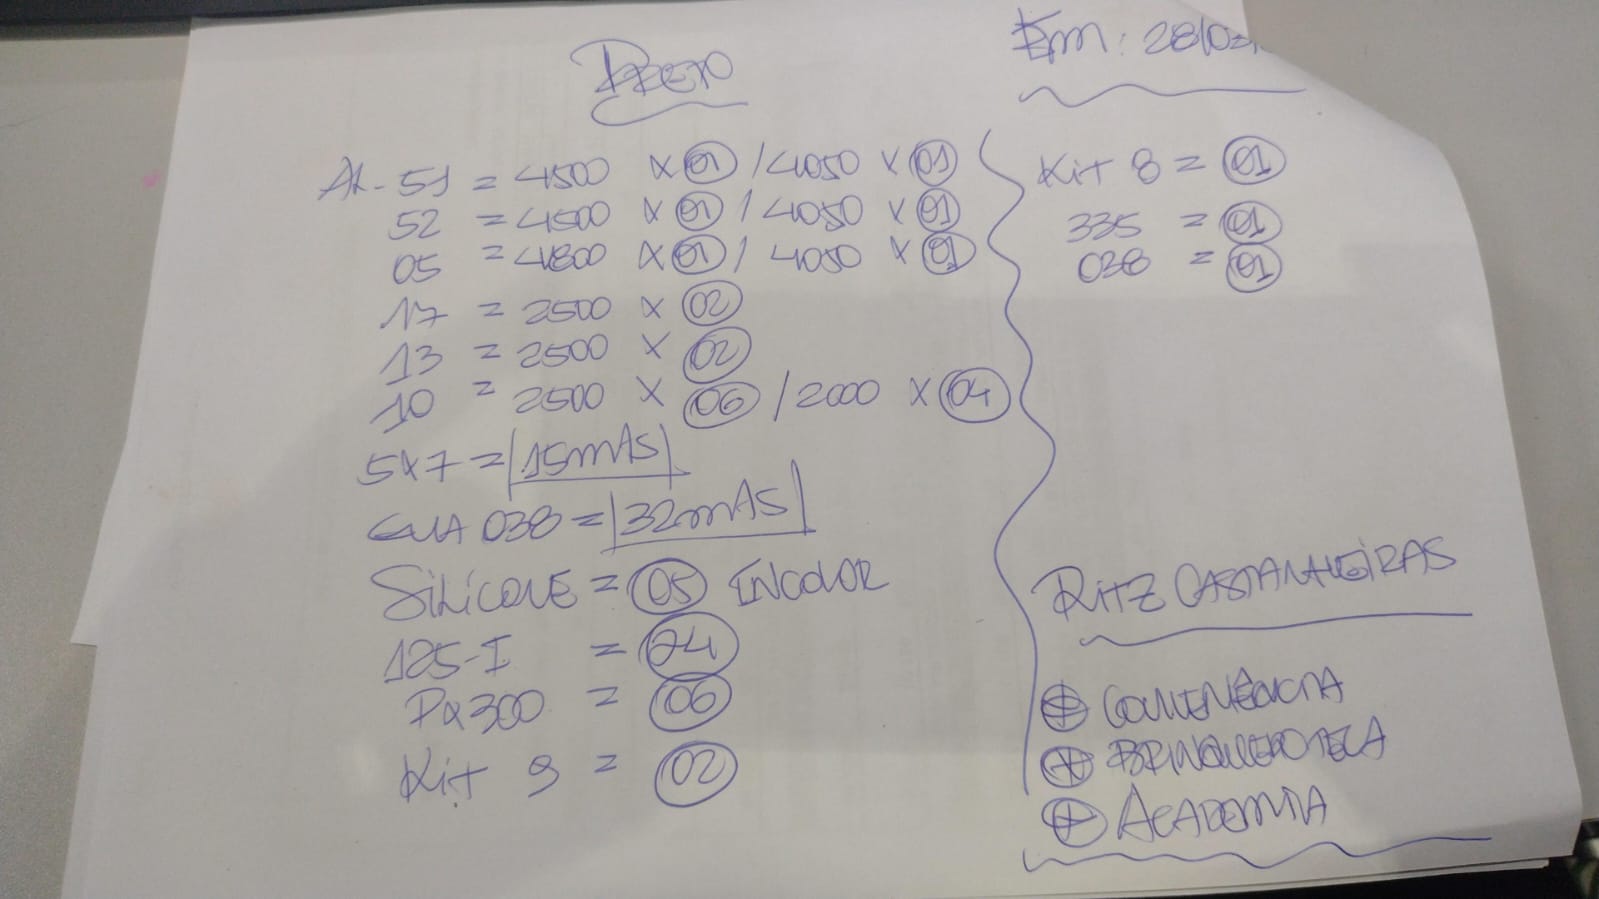 PRETO
Em: 28/02/
AL-51 = 4500 x 01 / 4050 x 01
52 = 4500 x 01 / 4050 x 01
05 = 4800 x 01 / 4050 x 01
17 = 2500 x 02
13 = 2500 x 02
10 = 2500 x 06 / 2000 x 04
5x7 = 15mts
GUIA 038 = 32mts
SILICONE = 05 INCOLOR
125-I = 24
Px300 = 06
Kit 9 = 02
Kit 8 = 01
335 = 01
038 = 01
RITZ CASTANHEIRAS
CONVENIÊNCIA
BRINQUEDOTECA
ACADEMIA